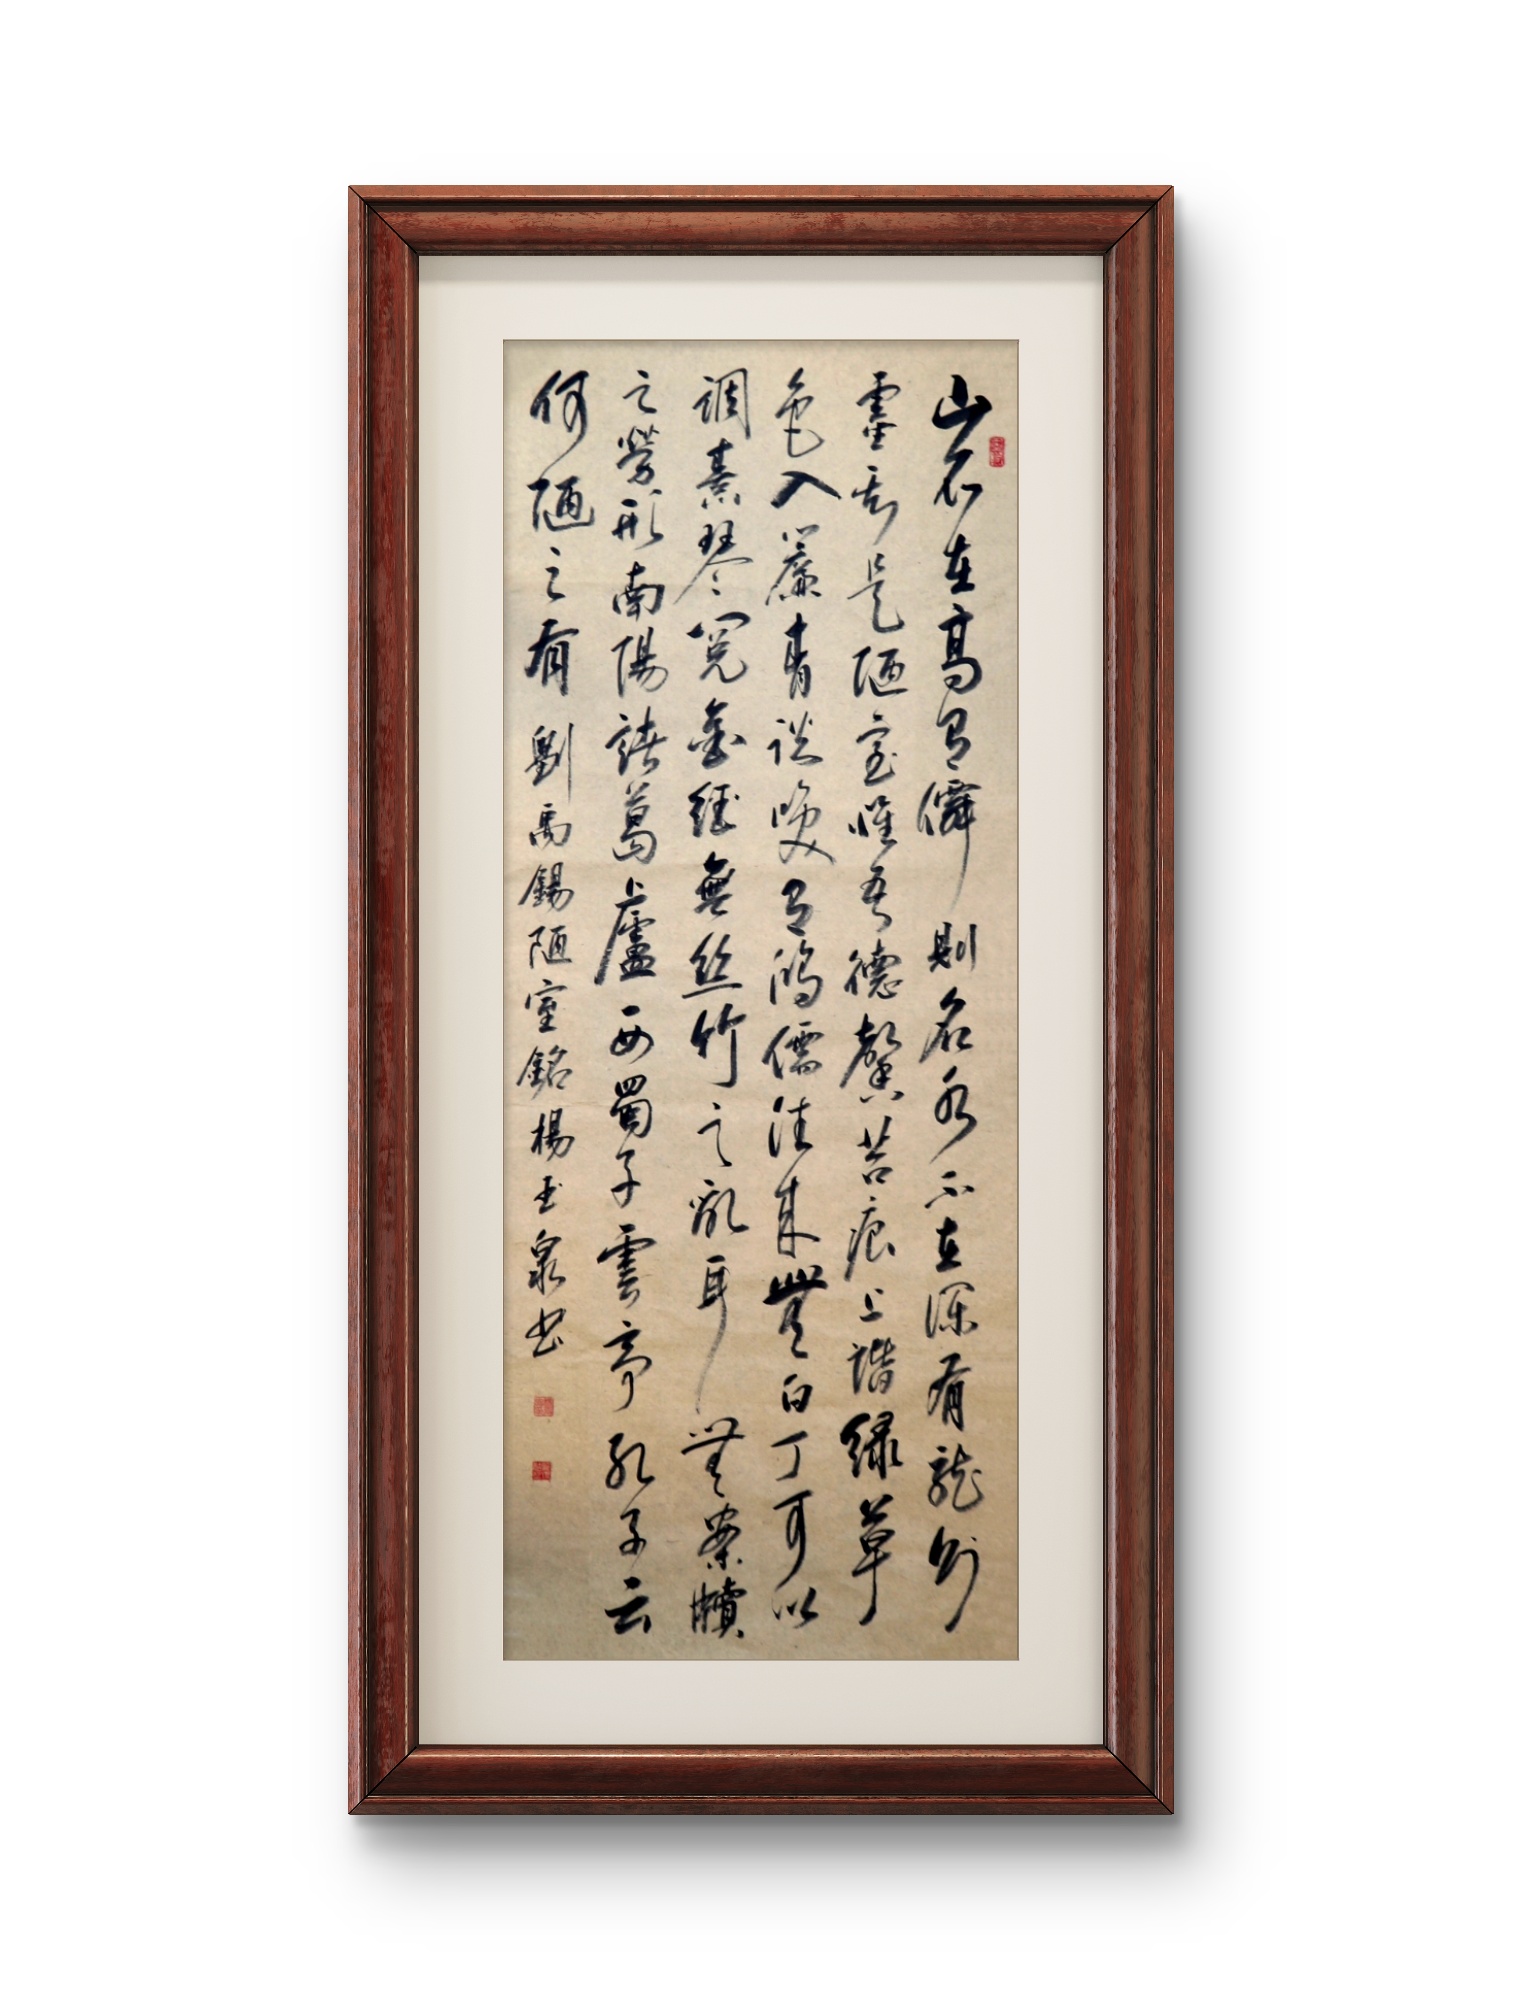 山不在高有僊則名水不在深有龍則
靈斯是陋室惟吾德馨苔痕上諧綠草
色入簾青談咲有鴻儒往來無白丁可以
調素琴閱金經無絲竹之亂耳無案牘
之勞形南陽諸葛廬西蜀子雲亭孔子云
何陋之有 劉禹錫陋室銘楊玉泉书